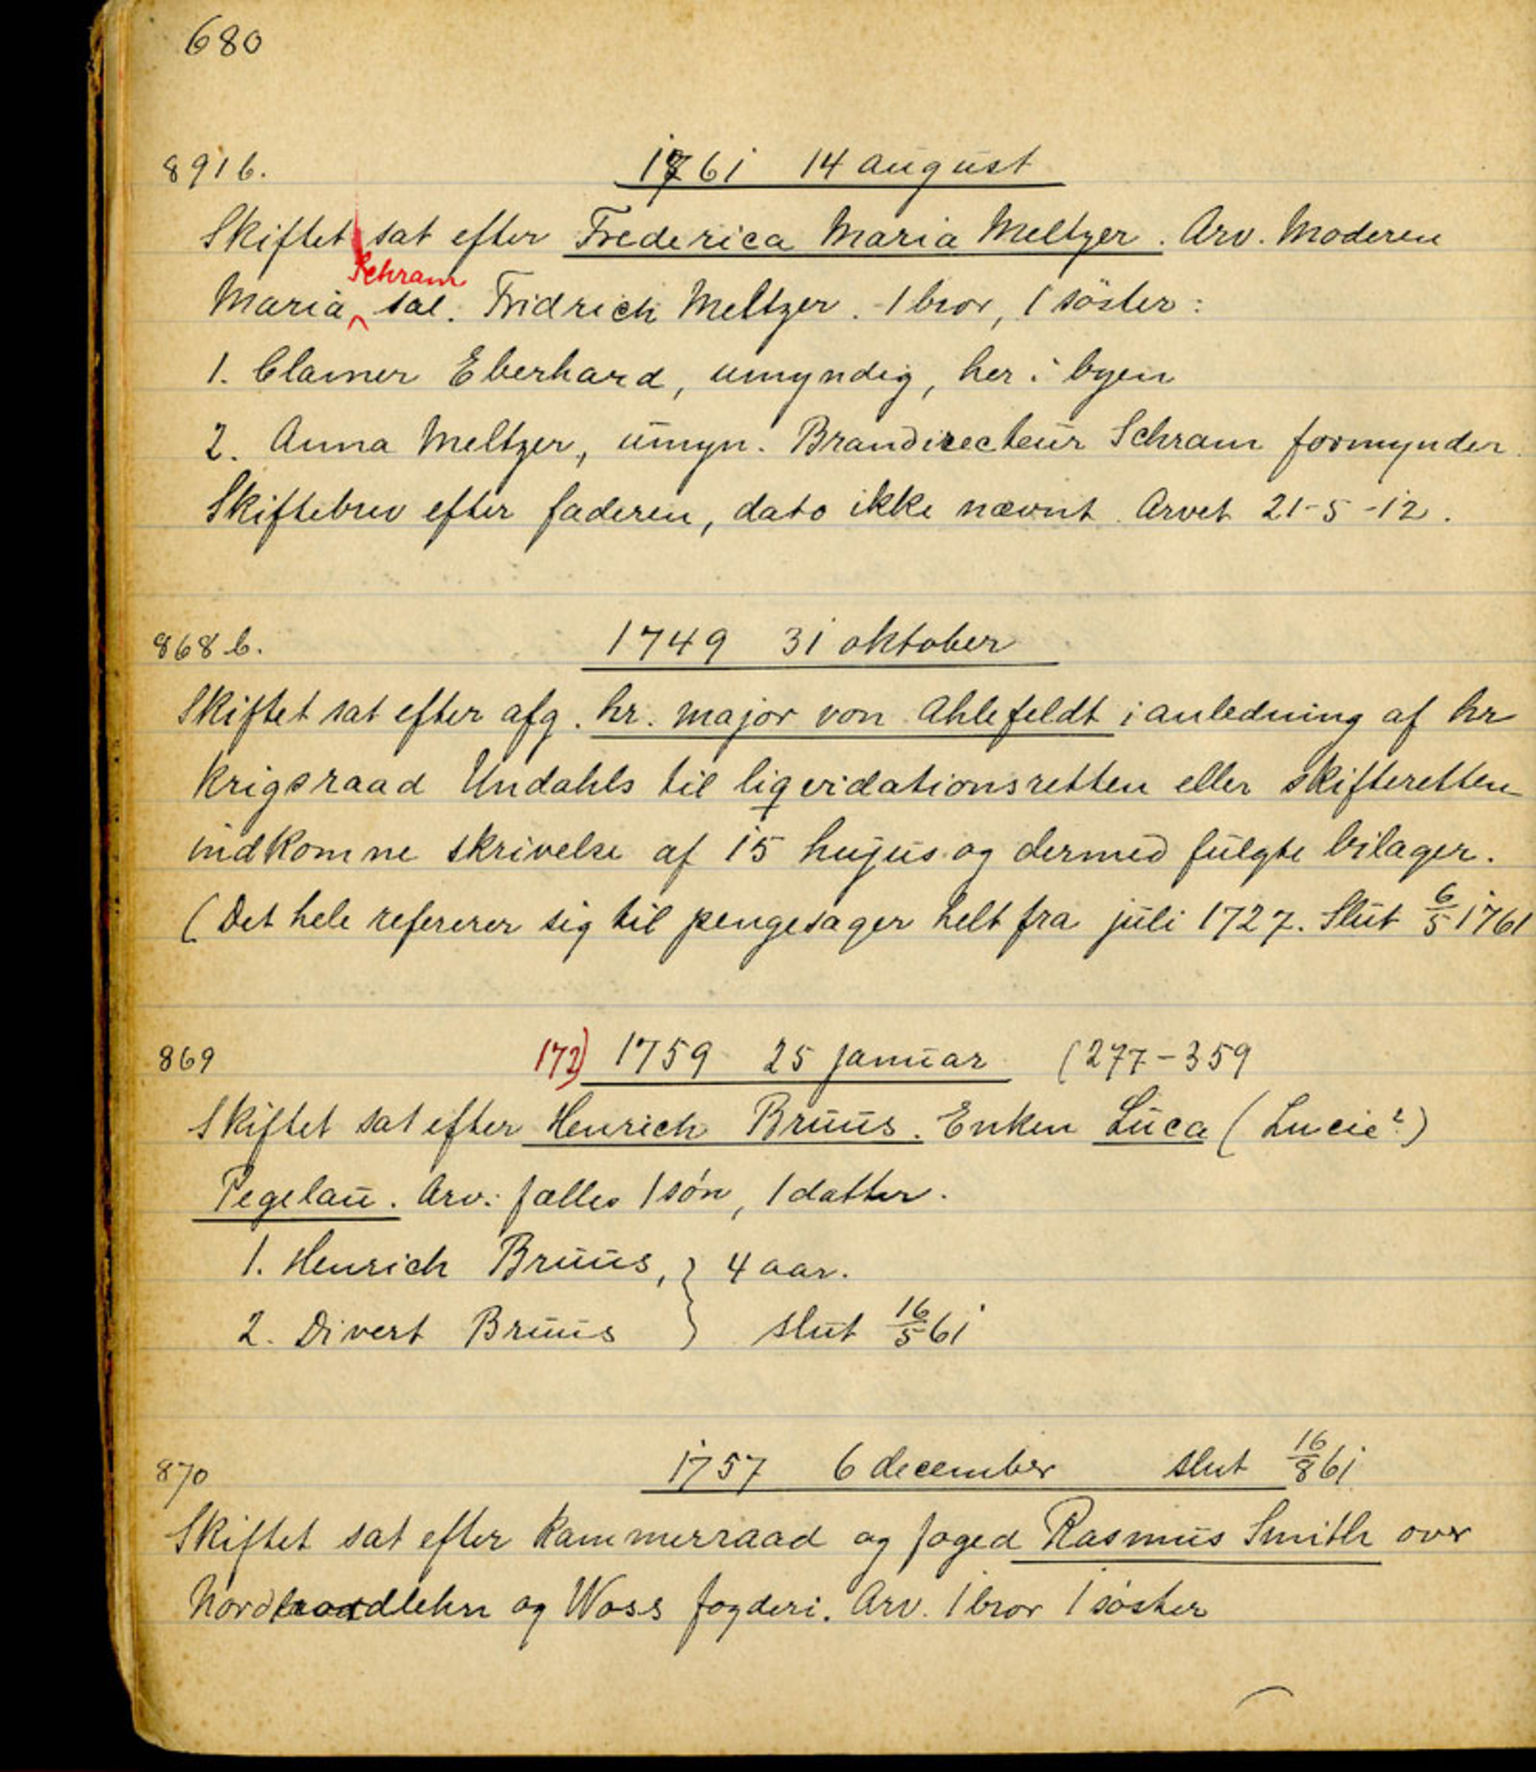 680
891 b. 1761 14 august
Skiftet sat efter Frederica Maria Meltzer. Arv. Moderen
Schram
Maria ‸ sal. Fridrich Meltzer. 1 bror, 1 söster:
1. Clamer Eberhard, umyndig, her i byen
2. Anna Meltzer, umyn. Brandirecteur Schram formynder.
Skiftebrev efter faderen, dato ikke nævnt. Arvet 21-5-12.
868 b. 1749 31 oktober
Skiftet sat efter afg. hr. major von Ahlefeldt i anledning af hr
krigsraad Undahls til liqvidationsretten eller skifteretten
indkomne skrivelse af 15 hujus og dermed fulgte bilager.
(Det hele refererer sig til pengesager helt fra juli 1727. Slut 6/5 1761
869 172) 1759 25 januar (277-359
Skiftet sat efter Henrich Bruus. Enken Luca (Lucie?)
Pegelau. Arv: fælles 1 søn, 1 datter.
1. Henrich Bruus, } 4 aar.
2. Divert Bruus } slut 16/5 61
870 1757 6 december slut 16/8 61
Skiftet sat efter kammerraad og foged Rasmus Smith over
Nordhordlehn og Woss fogderi. Arv. 1 bror 1 söster